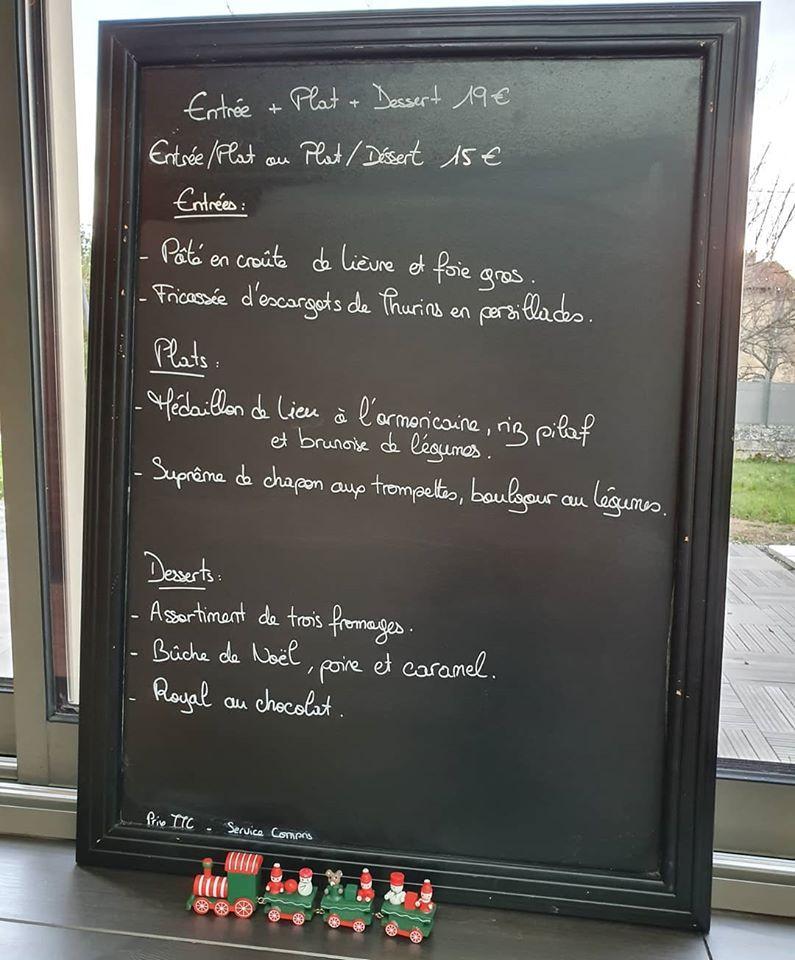 Entrée + Plat + Dessert 19€
Entrée/Plat ou Plat/Déssert 15€
Entrées:
- Pâté en croûte de lièvre et foie gras.
- Fricassée d'escargots de Thurins en persillades.
Plats:
- Médaillon de lieu à l'armoricaine, riz pilaf
et brunoise de légumes.
- Suprême de chapon aux trompettes, boulgour au légumes.
Desserts:
- Assortiment de trois fromages.
- Bûche de Noël, poire et caramel.
- Royal au chocolat.
Prix TTC - Service Compris